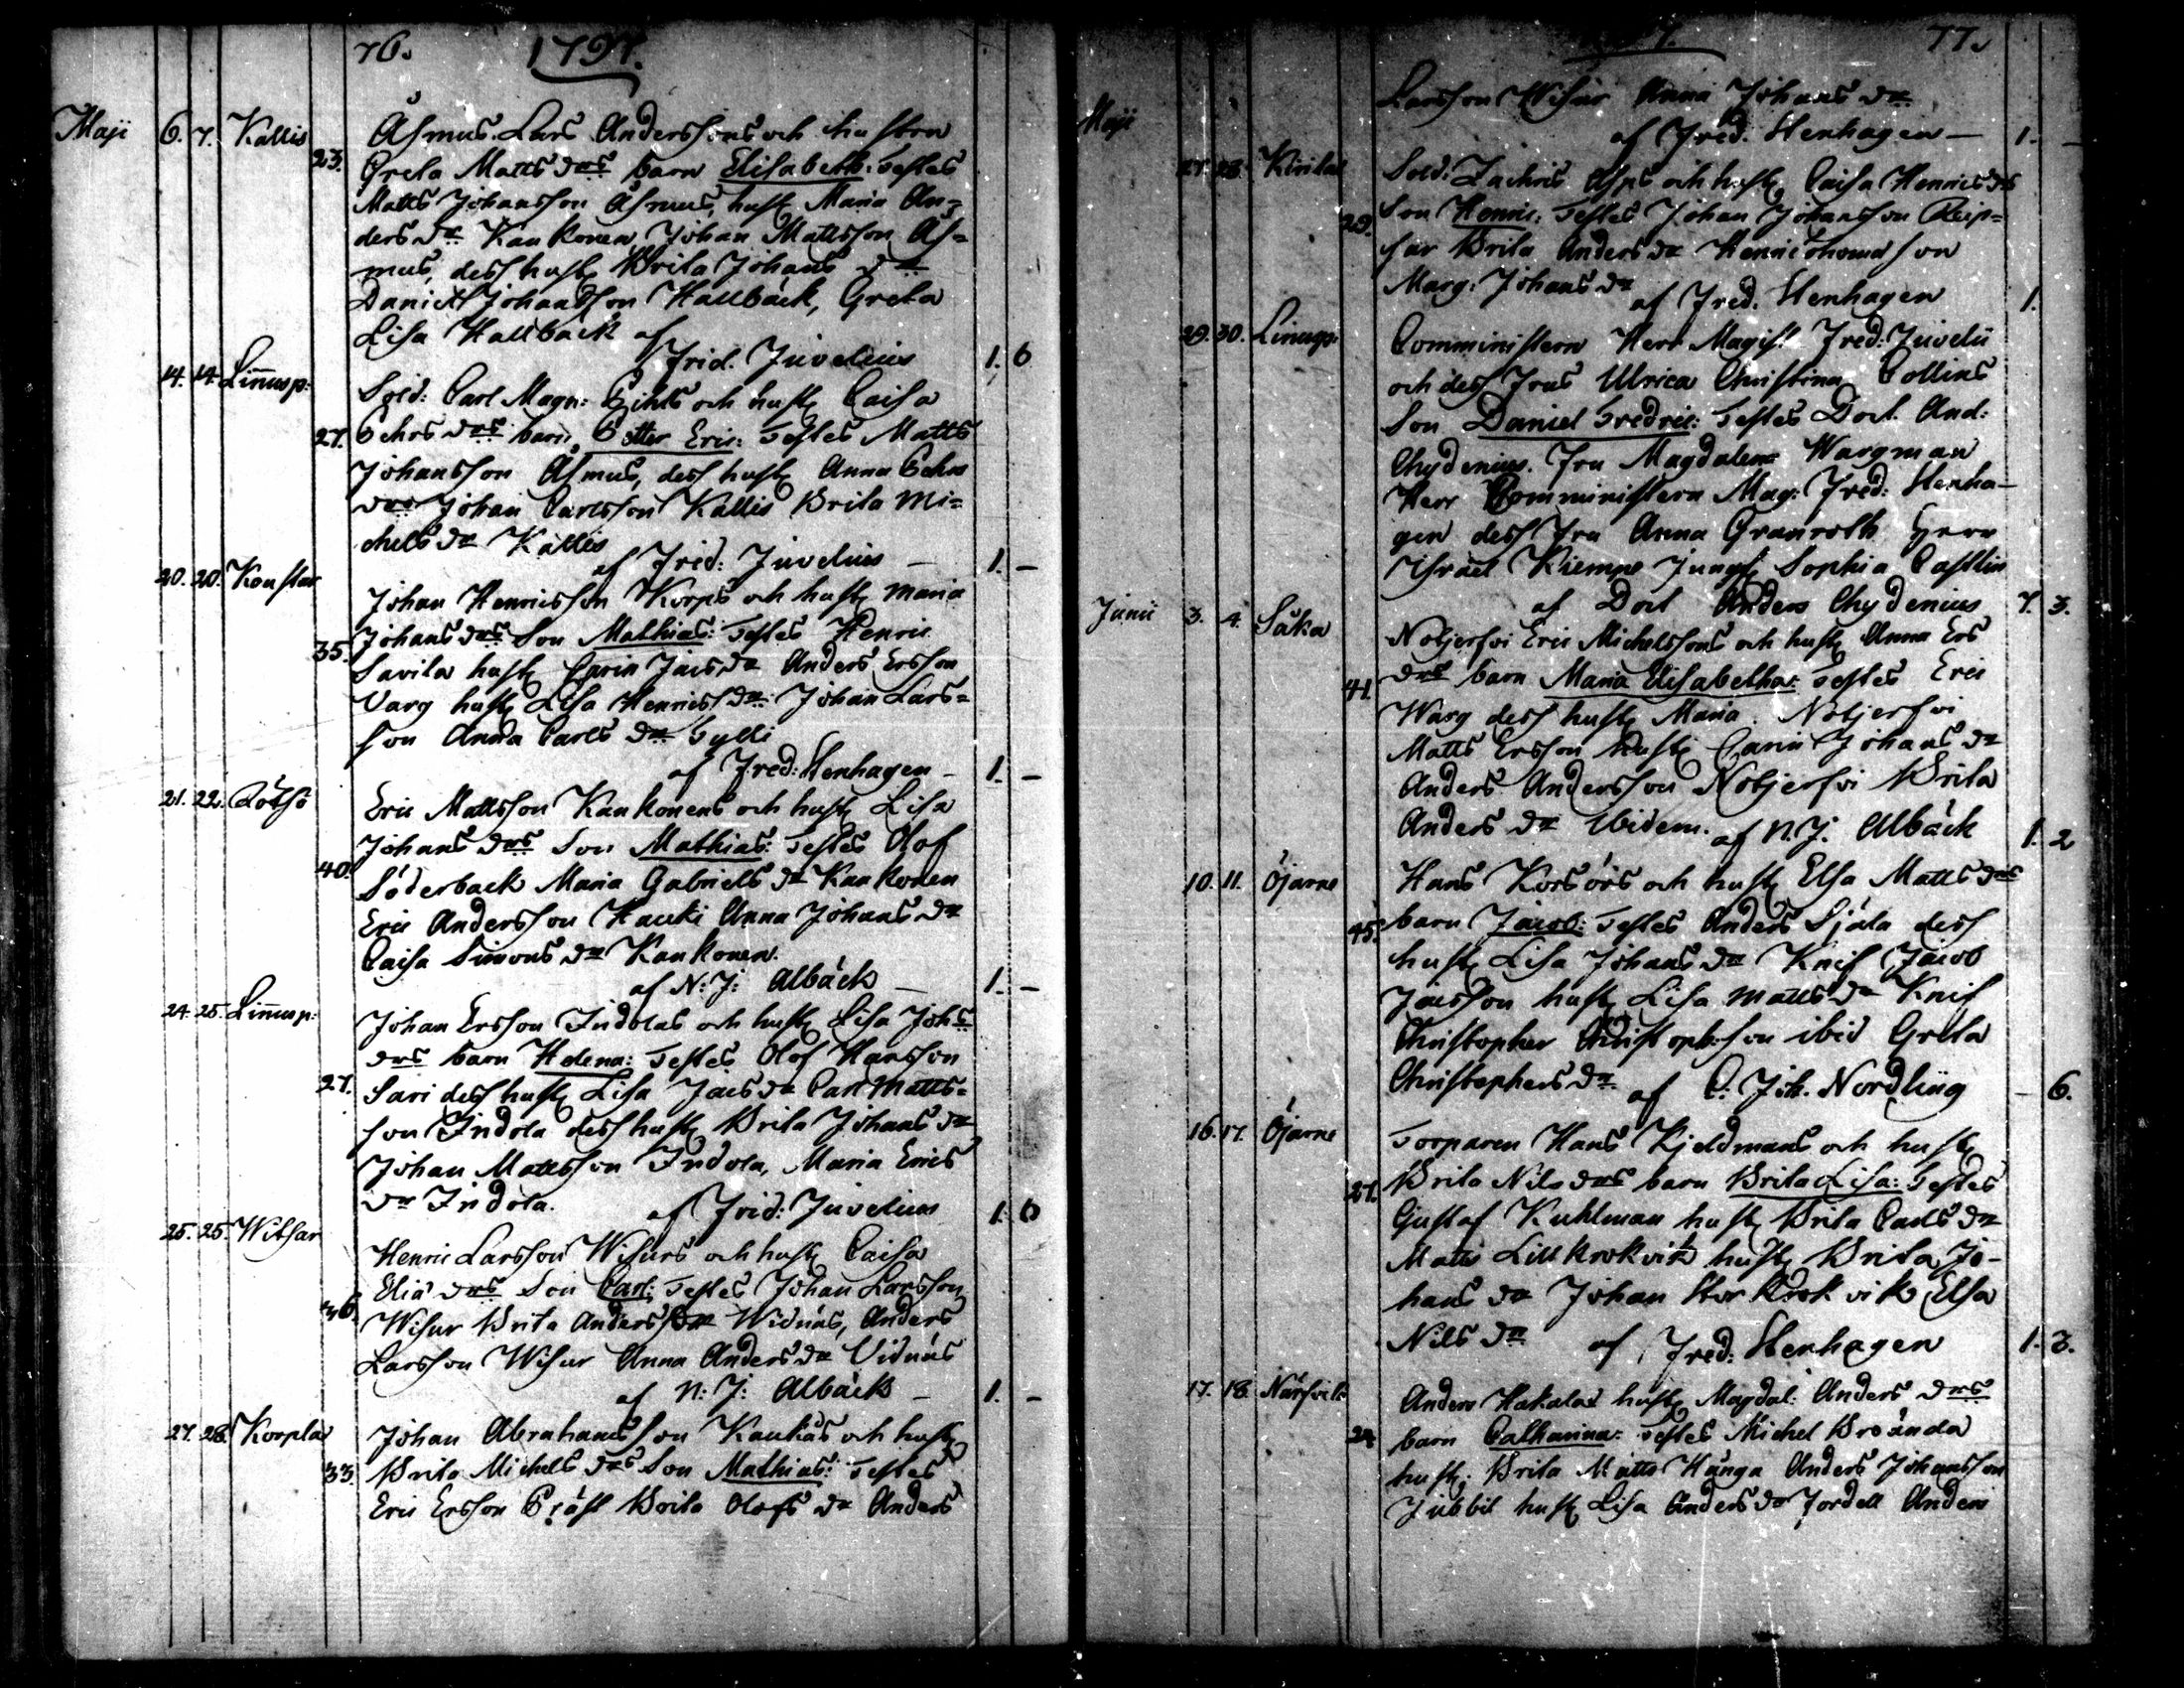 76. 1797.
Maji 6. 7. Kallis Åsmus Lars Anderssons och hustru
23. Greta Matts drs barn Elisabeth: Testes
Matts Johansson Åsmus, hust Maria An=
ders dr Kaukonen Johan Mattsson Ås=
mus, dess hust Brita Johans dr
Daniel Johansson Hallbäck, Greta
Lisa Hallback af
Frid. Juvelius 1. 6
14. 14. Linnusp: Sold: Carl Magn: och hust Caisa
27. drs barn, Petter Eric: Testes Matts
Johansson Åsmus, dess hust Anna
dr Johan Carlsson Kallis Brita Mi=
chels dr Kallis
af Frid: Juvelius — 1. —
20. 20. Johan Henricsson Korpis och hust Maria
35. Johans drs Son Mathias: Testes Henric
Savila hust Carin Jacs dr Anders Ersson
Varg hust Lisa Henrics dr: Johan Lars=
son Anna Carls dr Sylli
af Fred: Stenhagen — 1. —
21. 22. Rötsö Eric Mattsson Kaukonens och hust Lisa
Johans drs Son Mathias: Testes Olof
40. Söderback Maria Gabriels dr Kaukonen
Eric Andersson Kauki Anna Johans dr
Caisa Simons dr Kaukonen.
af N: J: Albäck — 1. —
24. 25. Linnusp: Johan Ersson Indolas och hust Lisa Johs
drs barn Helena: Testes Olof Hansson
27. Sari dess hust Lisa Jacs dr Carl Matts=
son Indola dess hust Brita Johans dr
Johan Mattsson Indola, Maria Erics
dr Indola. af Frid: Juvelius 1. 6
25. 25. Witsar Henric Larsson Wisurs och hust Caisa
Eliæ drs Son Carl: Testes Johan Larsson
36. Wisur Brita Anders dr Widnäs, Anders
Larsson Wisur Anna Anders dr Vidnäs
af N: J: Albäck — 1. —
27. 28. Korpla Johan Abrahamsson Kaukas och hust
33. Brita Michels drs Son Mathias: Testes
Eric Ersson Präst Brita Olofs dr Anders
77.
Maji Larsson Wisur Anna Johans dr
af Fred. Stenhagen — 1. —
27. 28. Kirila Sold: Zachris Asps och hust Caisa Henrics drs
29. Son Henric: Testes Johan Johansson Reip=
sar Brita Anders dr Henric Thomasson
Marg: Johans dr
af Fred. Stenhagen 1.
29. 30. Linusp: Comministern Herr Magist Fred: Juvelii
och dess Frus Ulrica Christina Collins
Son Daniel Fredric: Testes Doct. And:
Chydenius. Fru Magdalena Wargman
Herr Comministern Mag: Fred: Stenha-
gen dess Fru Anna Granroth Herr
Israel Kiempe Jungf Sophia Castlin
af Doct Anders Chydenius 7. 3.
Junii 3. 4. Såka Nobjersvi Eric Michelssons och hust Anna Ers
41. drs barn Maria Elisabetha: Testes Eric
Warg dess hust Maria. Nobjersvi
Matts Ersson hust Carin Johans dr
Anders Andersson Nobjersvi Brita
Anders dr ibidem. af N. J. Albäck 1. 2
10. 11. Öjarne Hans Korsörs och hust Elsa Matts drs
45. barn Jacob: Testes Anders Själa dess
hust Lisa Johans dr Knif Jacob
Jacsson hust Lisa Matts dr Knif
Christopher Christophsson ibid Greta
Christophers dr af C. Joh. Nordling — 6.
16. 17. Öjarne Torparen Hans Kjeldmans och hust
27. Brita Nils drs barn Brita Lisa: Testes
Gustaf Kuhlman hust Brita Carls dr
Matts Lillkrokvik hust Brita Jo-
hans dr Johan Storkrokvik Elsa
Nils dr af Fred: Stenhagen 1. 3.
17. 18. Närvik Anders Hakalax hust Magdal: Anders drs
24 barn Catharina: Testes Michel Brända
hust: Brita Matts Hånga Anders Johansson
Jubbil hust Lisa Anders dr Jordell Anders